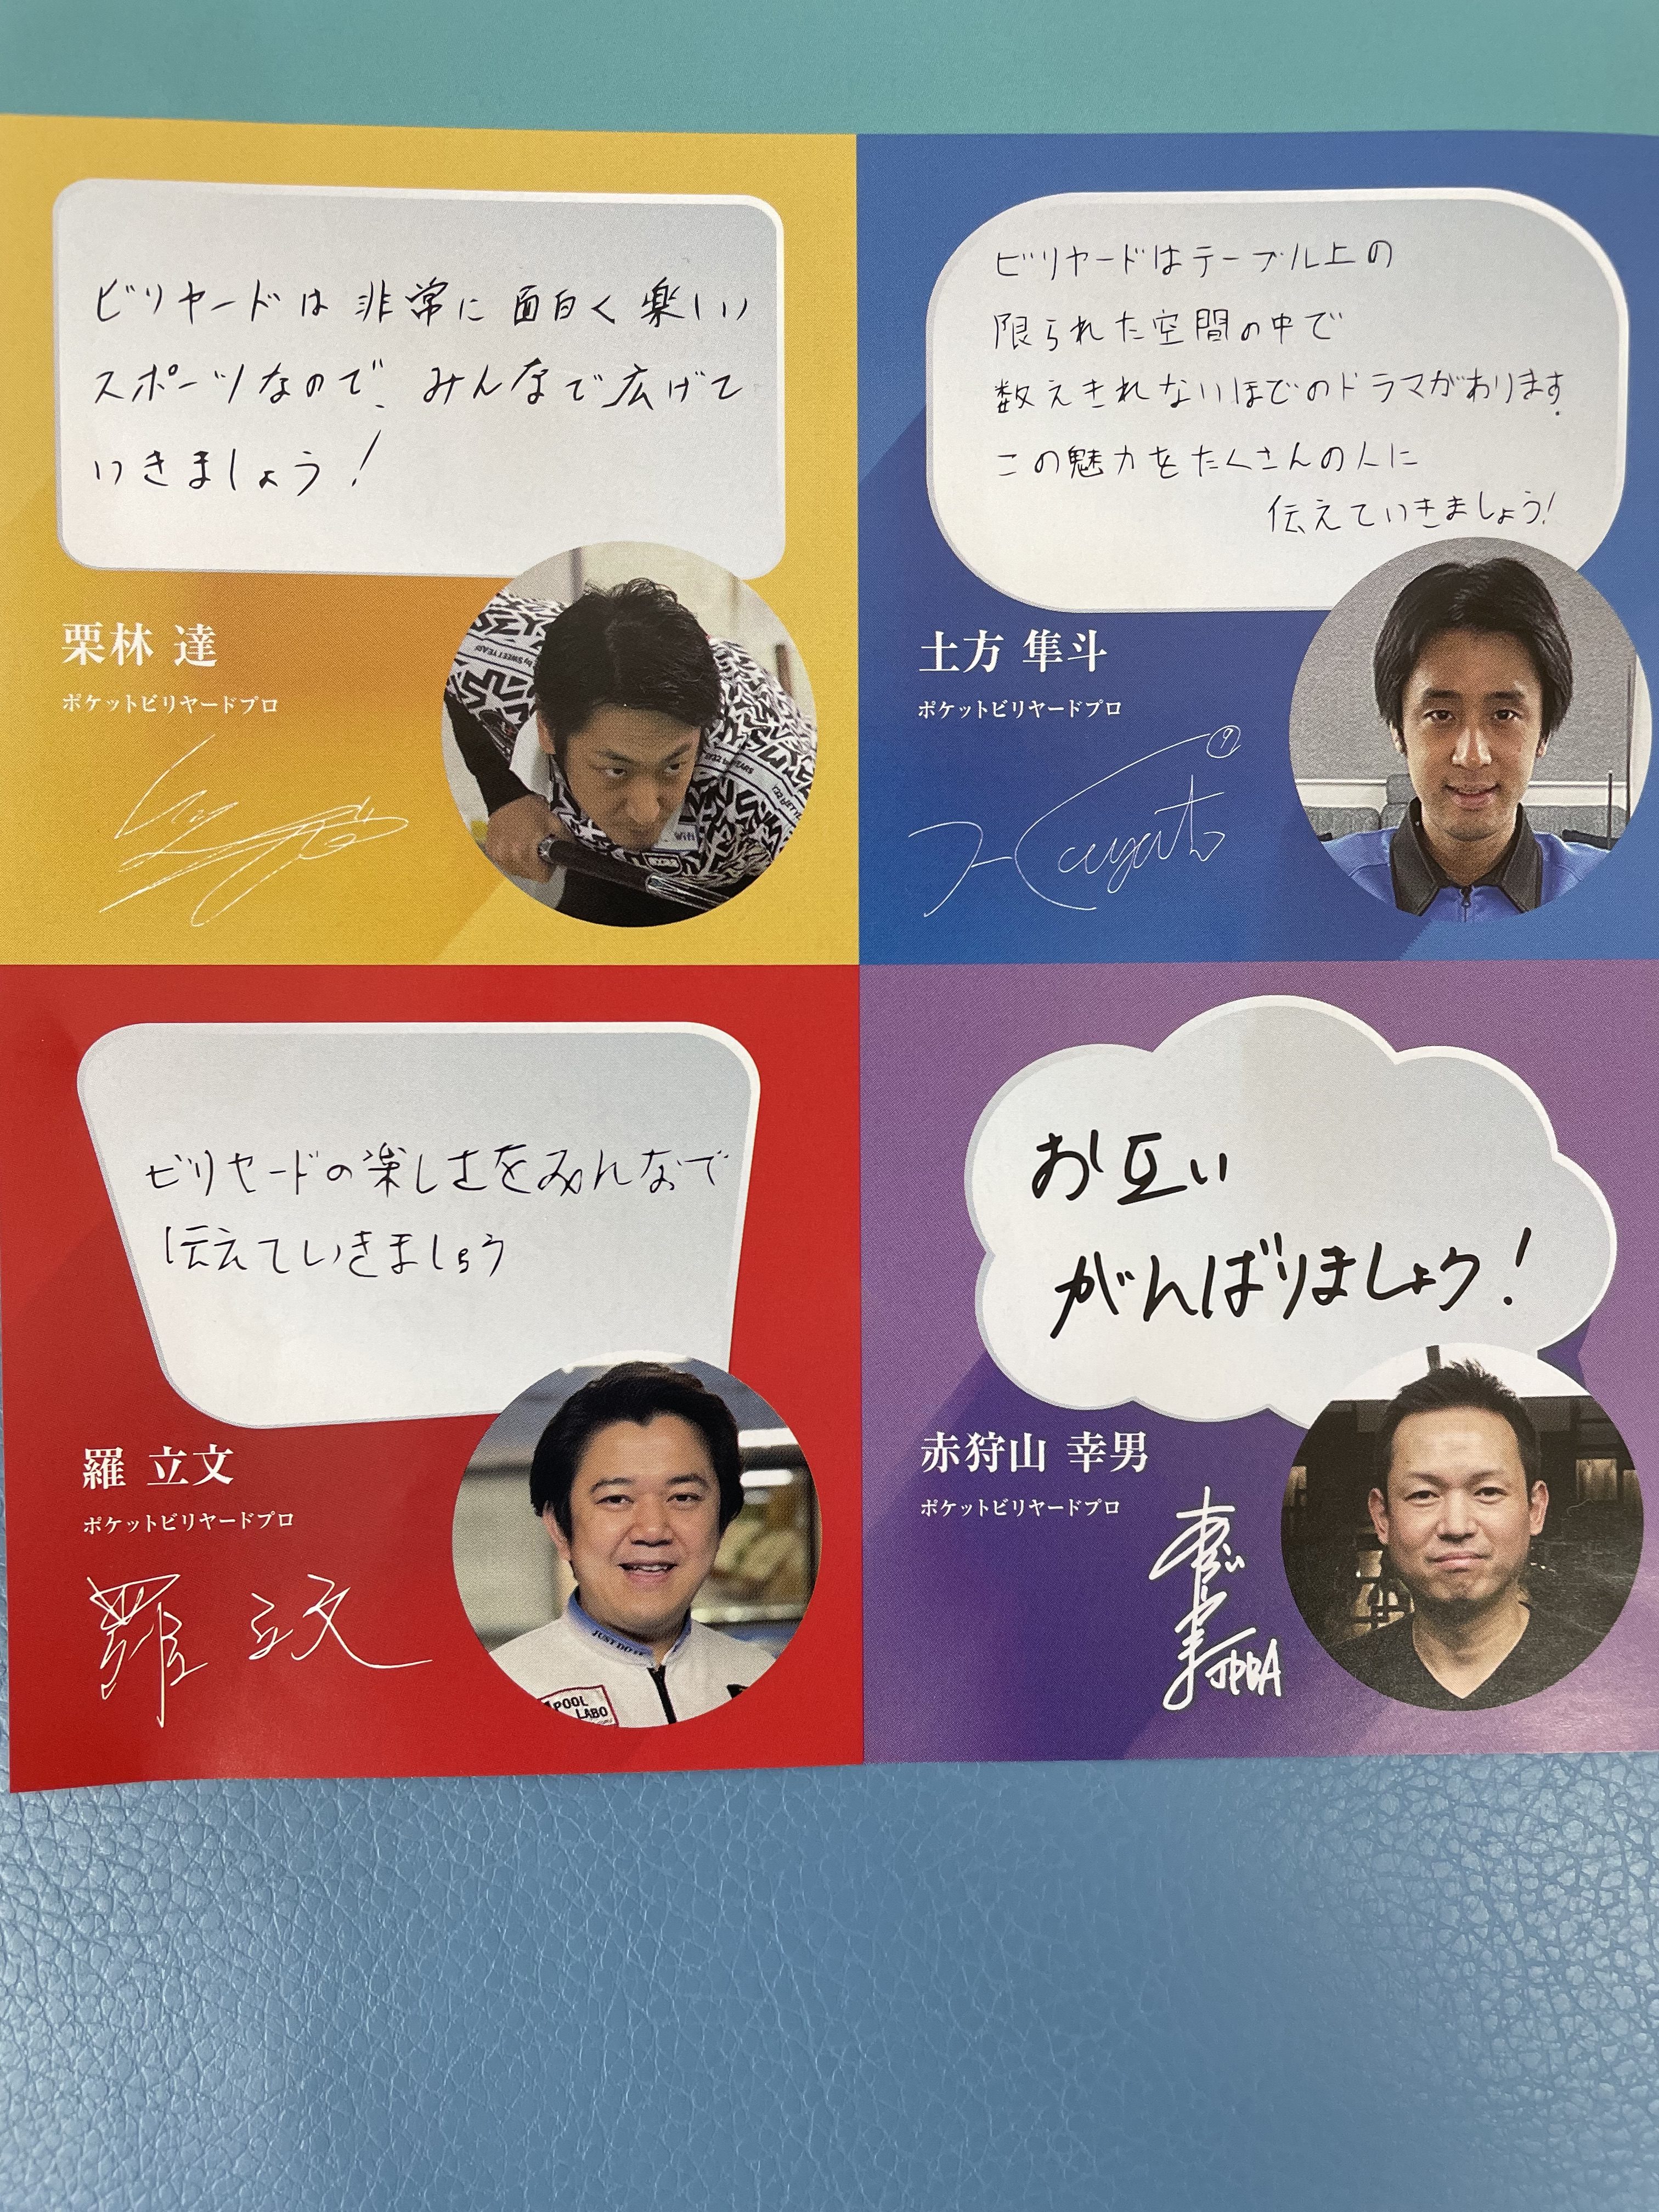 ビリヤードは非常に面白く楽しい
スポーツなので、みんなで広げて
いきましょう!
栗林 達
ポケットビリヤードプロ
ビリヤードはテーブル上の
限られた空間の中で
数えきれないほどのドラマがあります。
この魅力をたくさんの人に
伝えていきましょう!
土方 隼斗
ポケットビリヤードプロ
Hayato
ビリヤードの楽しさをみんなで
伝えていきましょう
羅 立文
ポケットビリヤードプロ
羅 立文
JUST DO IT
POOL
LABO
お互い
がんばりましょう!
赤狩山 幸男
ポケットビリヤードプロ
JPBA